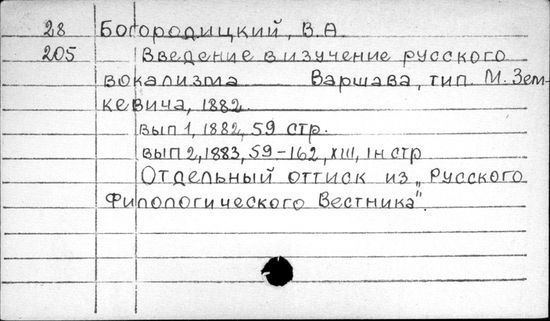 28 Богородицкий, В.А.
205 Введение в изучение русского
вокализма Варшава, тип. М. Зем-
кевича, 1882.
вып 1, 1882, 59 стр.
вып 2, 1883, 59-162, XIII, 1н стр
Отдельный оттиск из „Русского
Филологического Вестника".